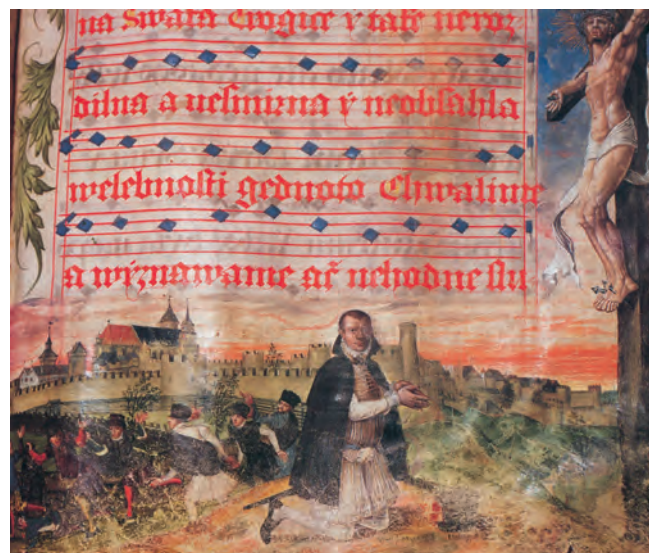 na Swata Trogice y take neroz
dilna a nesmirna ý neobsahla
welebnosti gednoto Chwalime
a wýznawame ač nehodne slu